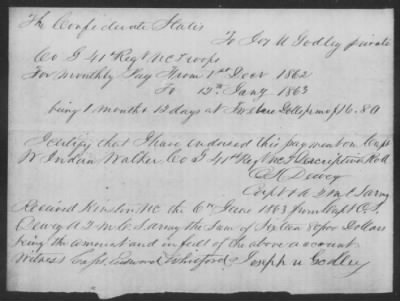 The Confederate States
To Jos N Godley private
Co G 41st Regt NC Troops
For Monthly Pay From 1st Decr 1862
To 12th Jany 1863
being 1 month & 12 days at Twelve Dolls pr mo $16.80
I certify that I have endorsed this payment on Capt
W Indian Walker Co G 41st Regt NC T Descriptive Roll
Dewey
Capt & A Q M C S Army
Received Kinston NC the 6th June 1863 from Capt
Dewey A Q M C S army the Sum of Sixteen 80/100 Dollars
being the amount and in full of the above account
Witness Capt Edward Whitford Joseph N Godley